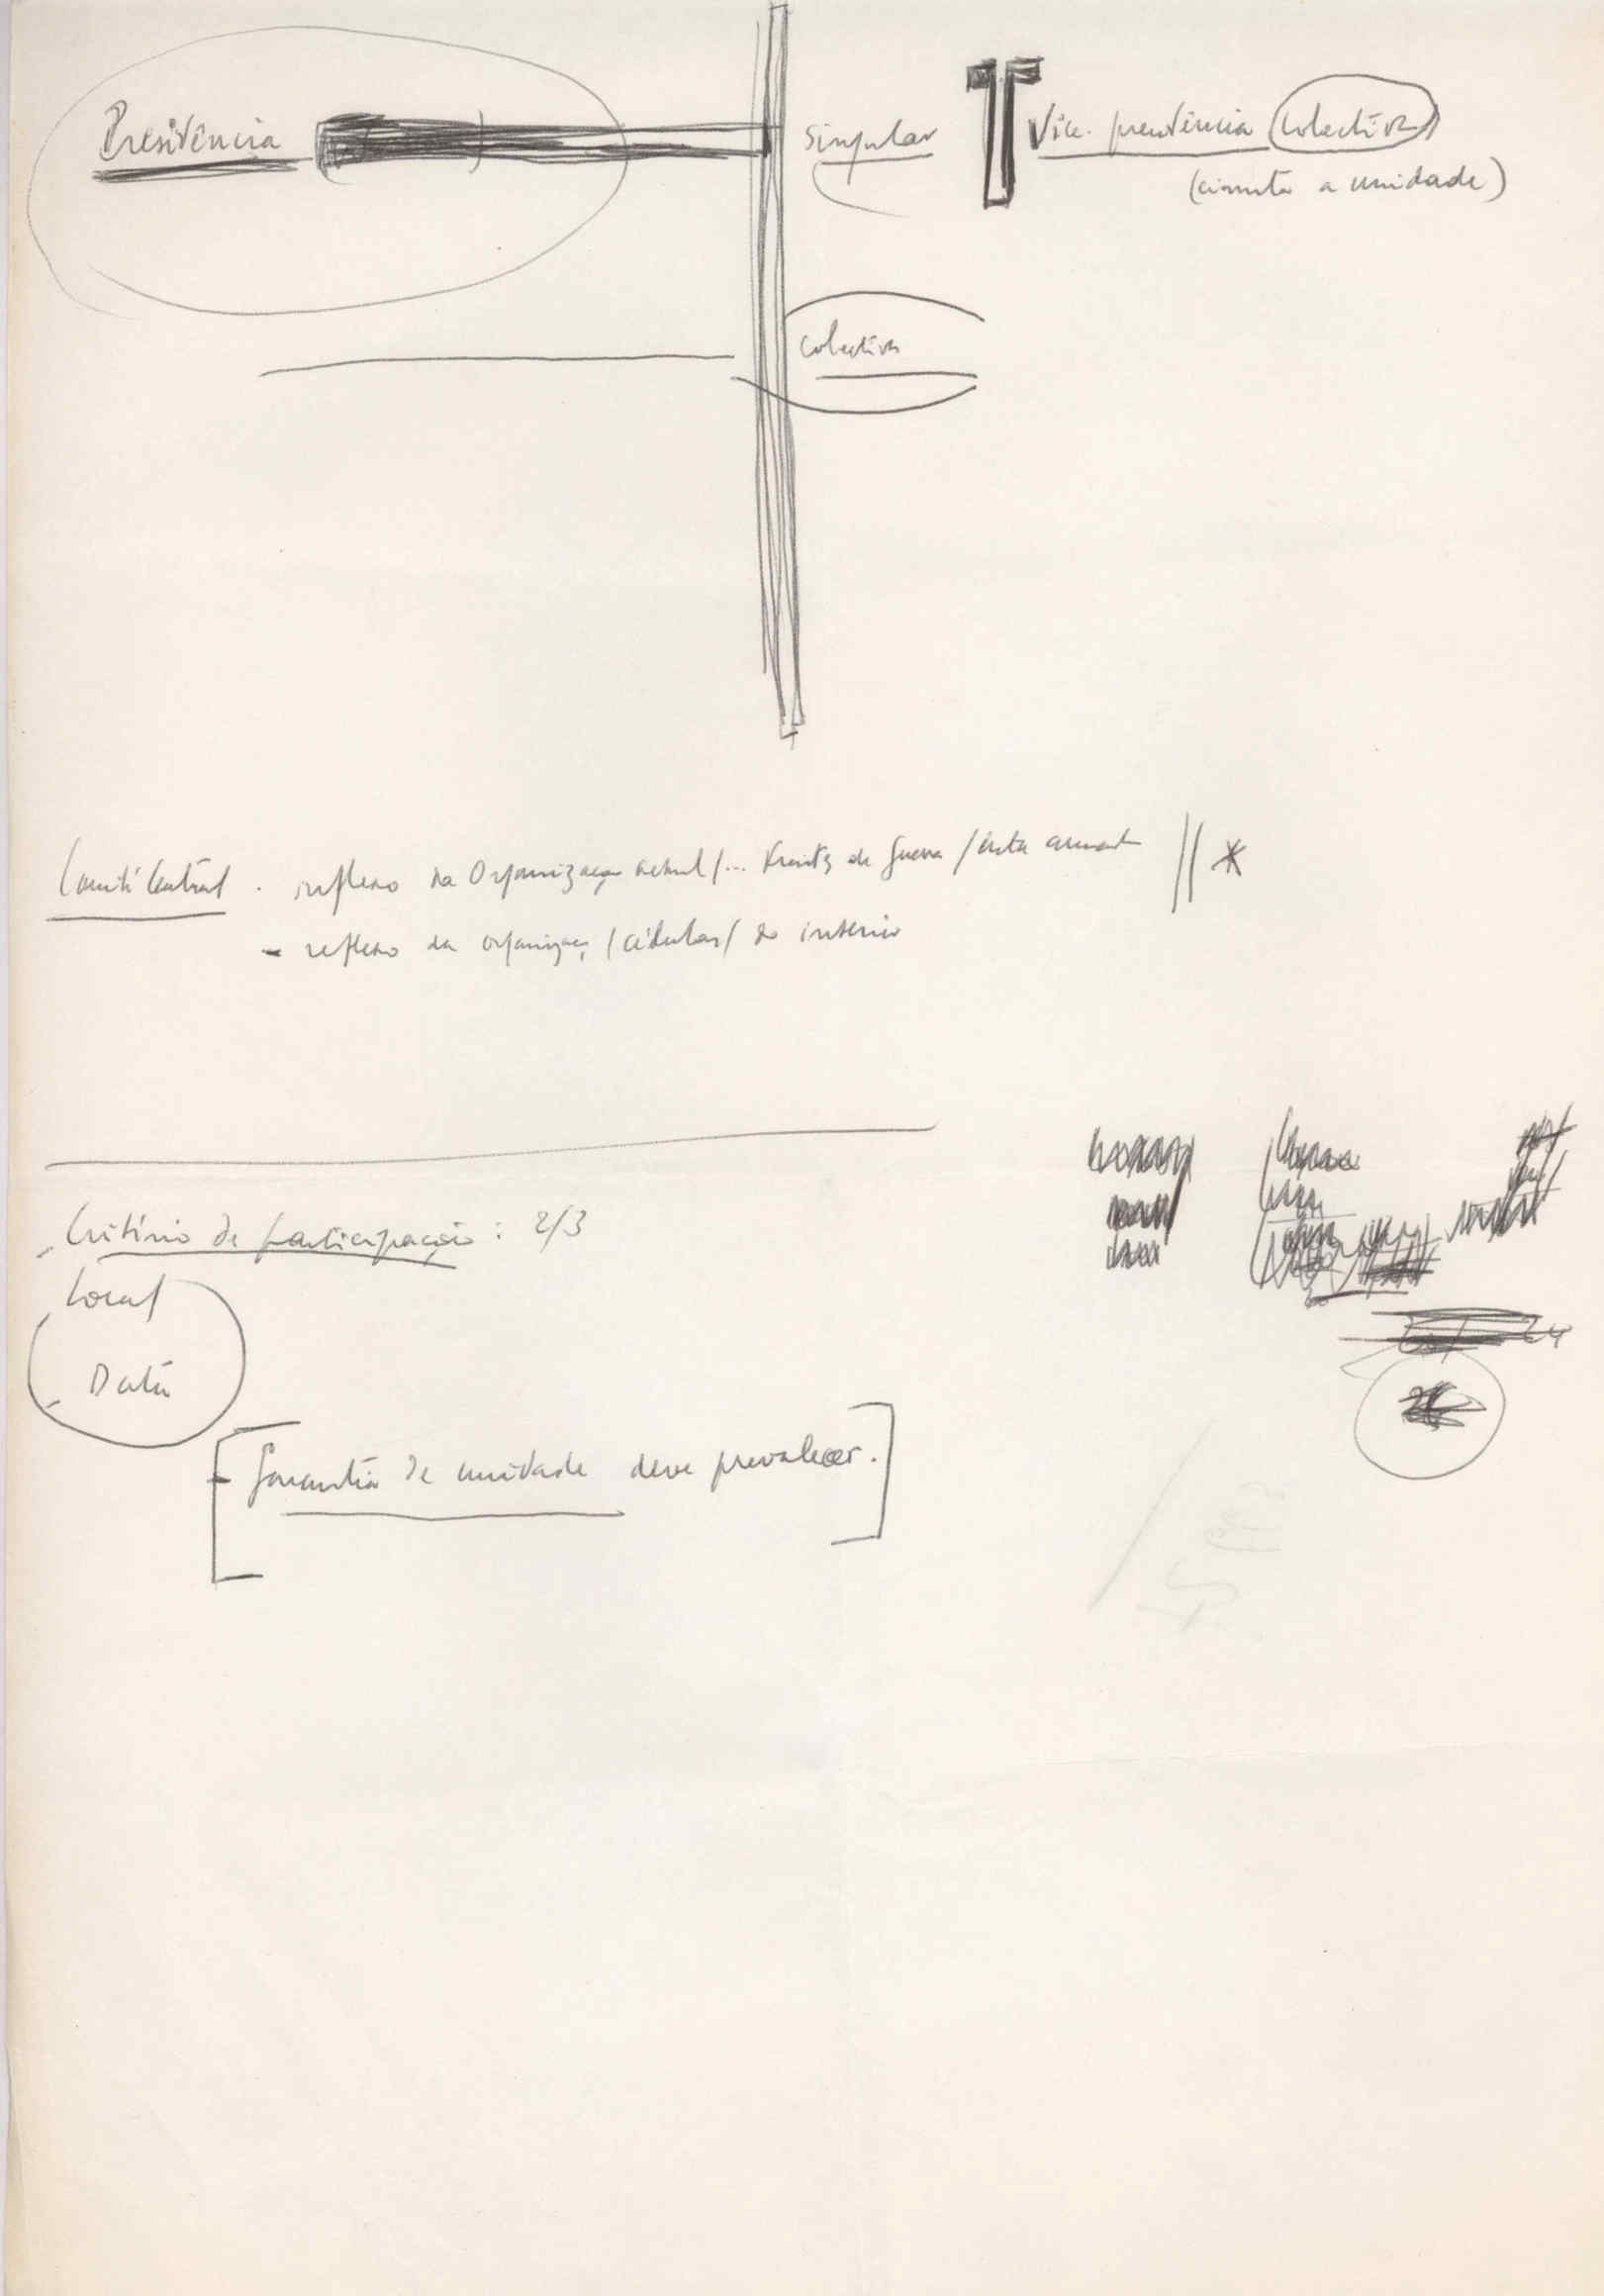 Presidência singular Vice-presidência (colectiva)
(cimenta a unidade)
colectiva
Comité Central - reflexo da Organização actual /... Frentes de guerra / luta armada // *
- reflexo da organizaç. / células / do interior
- Critério de participação : 2/3
- Local
- Data
[- Garantia de unidade deve prevalecer.]